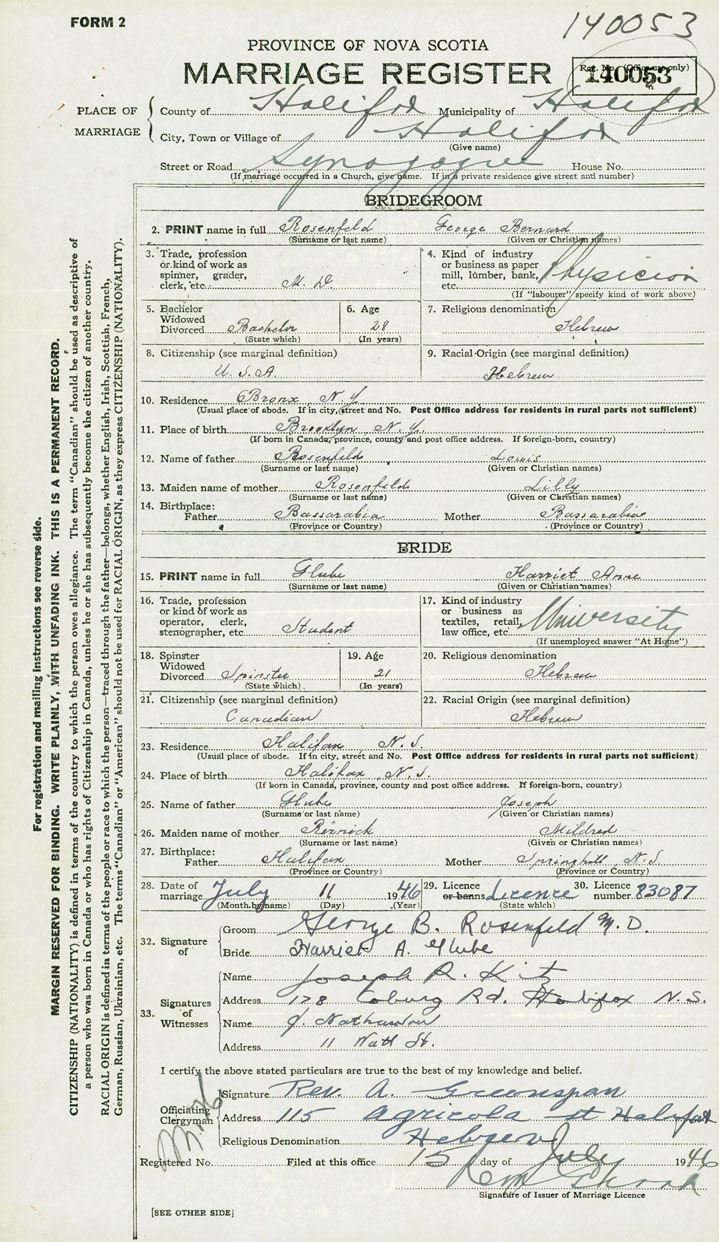 FORM 2
140053
PROVINCE OF NOVA SCOTIA
MARRIAGE REGISTER
Reg. No. (Office use only)
140053
PLACE OF MARRIAGE
County of Halifax Municipality of Halifax
City, Town or Village of Halifax
(Give name)
Street or Road Synagogue House No.
(If marriage occurred in a Church, give name. If in a private residence give street and number)
BRIDEGROOM
2. PRINT name in full Rosenfeld George Bernard
(Surname or last name) (Given or Christian names)
3. Trade, profession or kind of work as spinner, grader, clerk, etc. M. D.
4. Kind of industry or business as paper mill, lumber, bank, etc. Physician
(If "labourer" specify kind of work above)
5. Bachelor Widowed Divorced Bachelor
(State which)
6. Age 28
(In years)
7. Religious denomination Hebrew
8. Citizenship (see marginal definition) U.S.A.
9. Racial-Origin (see marginal definition) Hebrew
10. Residence Bronx, N.Y.
(Usual place of abode. If in city, street and No. Post Office address for residents in rural parts not sufficient)
11. Place of birth Brooklyn, N.Y.
(If born in Canada, province, county and post office address. If foreign-born, country)
12. Name of father Rosenfeld Louis
(Surname or last name) (Given or Christian names)
13. Maiden name of mother Rosenfeld Lilly
(Surname or last name) (Given or Christian names)
14. Birthplace:
Father Bassarabia Mother Bassarabia
(Province or Country) (Province or Country)
BRIDE
15. PRINT name in full Glube Harriet Anne
(Surname or last name) (Given or Christian names)
16. Trade, profession or kind of work as operator, clerk, stenographer, etc. Student
17. Kind of industry or business as textiles, retail, law office, etc. University
(If unemployed answer "At Home")
18. Spinster Widowed Divorced Spinster
(State which)
19. Age 21
(In years)
20. Religious denomination Hebrew
21. Citizenship (see marginal definition) Canadian
22. Racial Origin (see marginal definition) Hebrew
23. Residence Halifax, N.S.
(Usual place of abode. If in city, street and No. Post Office address for residents in rural parts not sufficient)
24. Place of birth Halifax, N.S.
(If born in Canada, province, county and post office address. If foreign-born, country)
25. Name of father Glube Joseph
(Surname or last name) (Given or Christian names)
26. Maiden name of mother Mildred
(Surname or last name) (Given or Christian names)
27. Birthplace:
Father Halifax Mother Springhill, N.S.
(Province or Country) (Province or Country)
28. Date of marriage July 11 1946
(Month by name) (Day) (Year)
29. Licence or banns Licence
(State which)
30. Licence number 83087
32. Signature of
Groom George B. Rosenfeld M.D.
Bride Harriet A. Glube
33. Signatures of Witnesses
Name Joseph R. Kitz
Address 178 Coburg Rd. Halifax N.S.
Name J. Nathanson
Address 11 Watt St.
I certify the above stated particulars are true to the best of my knowledge and belief.
Officiating Clergyman
Signature Rev. A. Greenspan
Address 115 Agricola st Halifax
Religious Denomination Hebrew
Registered No. Filed at this office 15 day of July 1946
Signature of Issuer of Marriage Licence
[SEE OTHER SIDE]
For registration and mailing instructions see reverse side.
MARGIN RESERVED FOR BINDING. WRITE PLAINLY, WITH UNFADING INK. THIS IS A PERMANENT RECORD.
CITIZENSHIP (NATIONALITY) is defined in terms of the country to which the person owes allegiance. The term "Canadian" should be used as descriptive of
a person who was born in Canada or who has rights of Citizenship in Canada, unless he or she has subsequently become the citizen of another country.
RACIAL ORIGIN is defined in terms of the people or race to which the person—traced through the father—belongs, whether English, Irish, Scottish, French,
German, Russian, Ukrainian, etc. The terms "Canadian" or "American" should not be used for RACIAL ORIGIN, as they express CITIZENSHIP (NATIONALITY).